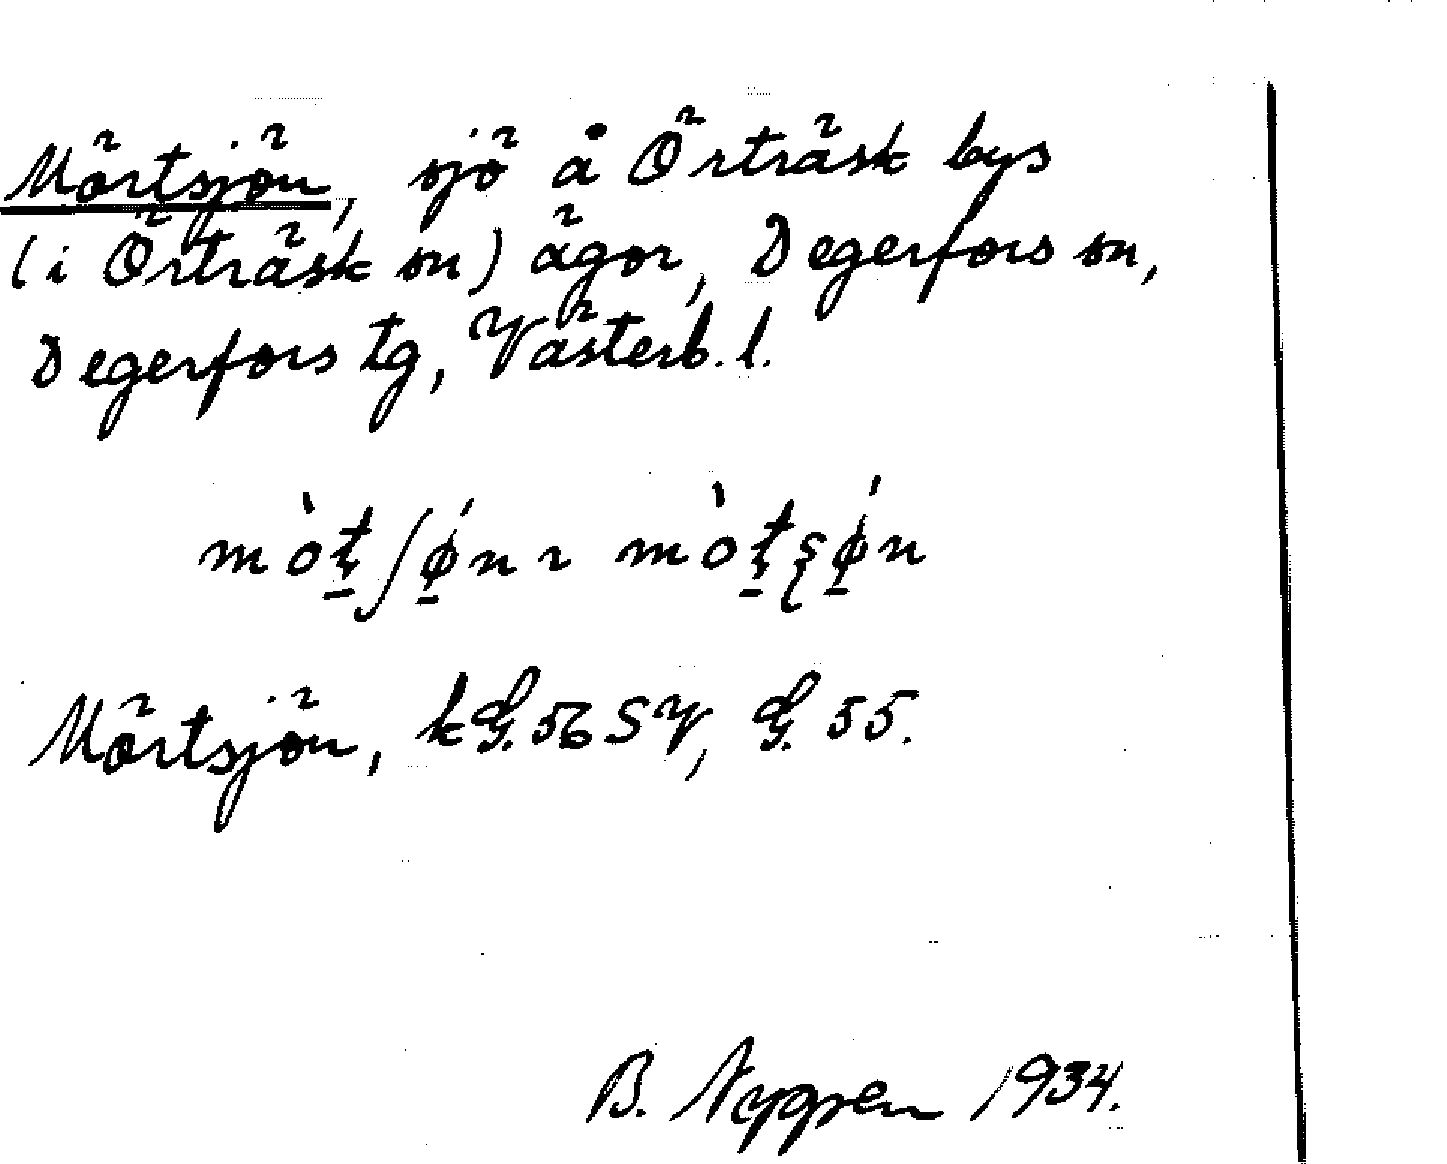 Mörtsjön, sjö å Örträsk bys
(i Örträsk sn) ägor, Degerfors sn,
Degerfors tg, Västerb. l.
Mörtsjön, kG. 56 SV, G. 55.
B. Nygren 1934.